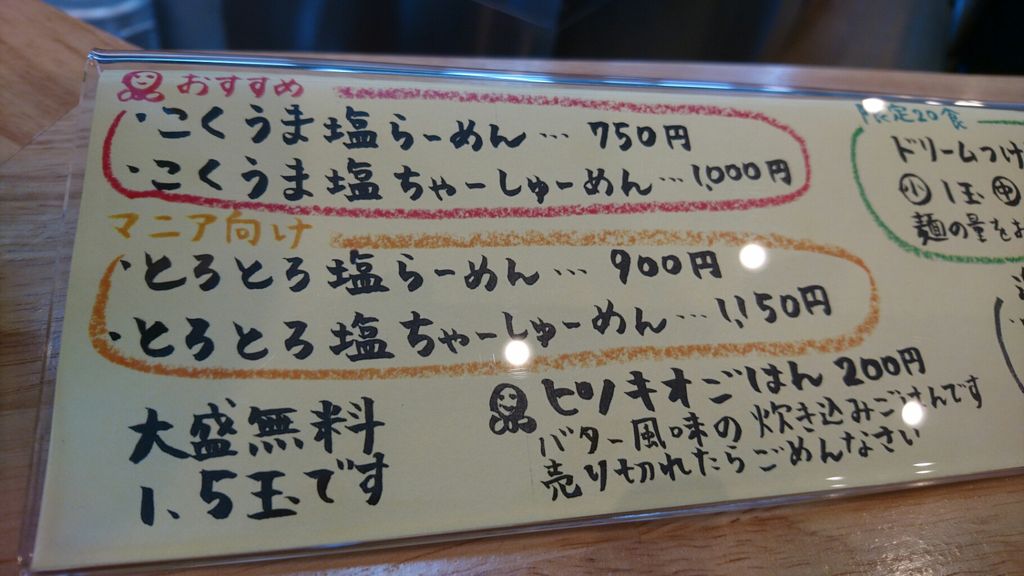 おすすめ
・こくうま塩らーめん… 750円
・こくうま塩ちゃーしゅーめん…1,000円
マニア向け
・とろとろ塩らーめん… 900円
・とろとろ塩ちゃーしゅーめん…1,150円
大盛無料
1、5玉です
ピノキオごはん 200円
バター風味の炊き込みごはんです
売り切れたらごめんなさい
限定20食
ドリームつけ
小 1玉 中
麺の量をお